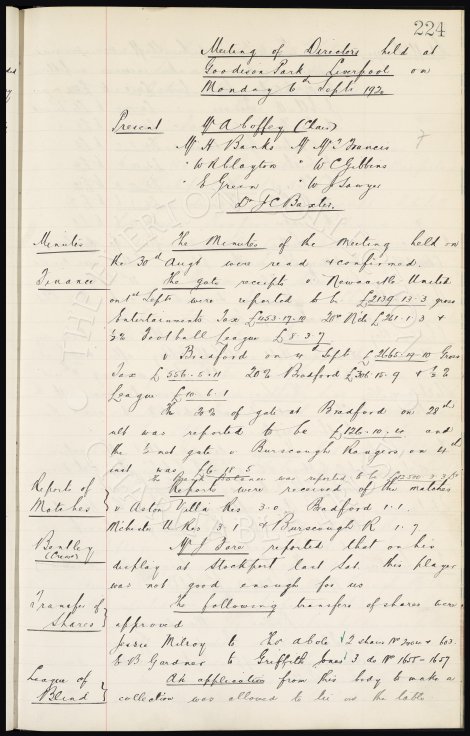 224
Meeting of Directors held at
Goodison Park Liverpool on
Monday 6th Septr 1920
Present Mr A Coffey (Chair)
Mr H Banks Mr Mc J Francis
" W R Clayton " W C Gibbins
" E Green " W J Sawyer
Dr J C Baxter.
Minutes The Minutes of the Meeting held on
the 30th Augt were read & confirmed.
Finance The gate receipts v Newcastle United
on 1st Septr were reported to be £2139.13.3 gross
Entertainments Tax £453.17.10 20% N'cle £261.1.3 &
½% Football League £8.3.7
v Bradford on 4th Sept £2665.19.10 Gross
Tax £556.5.11 20% Bradford £306.15.9 & ½%
League £10.6.1
The 20% of gate at Bradford on 28th
ult was reported to be £126.10. and
the ½ net gate v Burscough Rangers on 4th
inst was £6.18.5
the Bank Balance was reported to be £12500.3.3
Reports of Matches } Reports were received of the matches
v Aston Villa Res 3.0 Bradford 1.1.
M'chester U Res 3.1 & Burscough R 1.7
Bentley (Crewe) Mr J Fare reported that on his
display at Stockport last Sat this player
was not good enough for us
Transfer of Shares } The following transfers of shares were
approved
Jessie Milroy to Thos 2 shares No & 603.
E B Gardner to Griffith Jones 3 do No 1655-1657
League of Blind } An application from this body to make a
collection was allowed to lie on the table